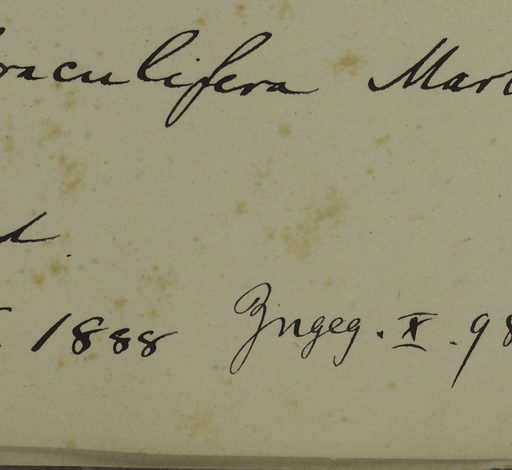 raculifera Mart
d.
1888 Zngeg. X. 98